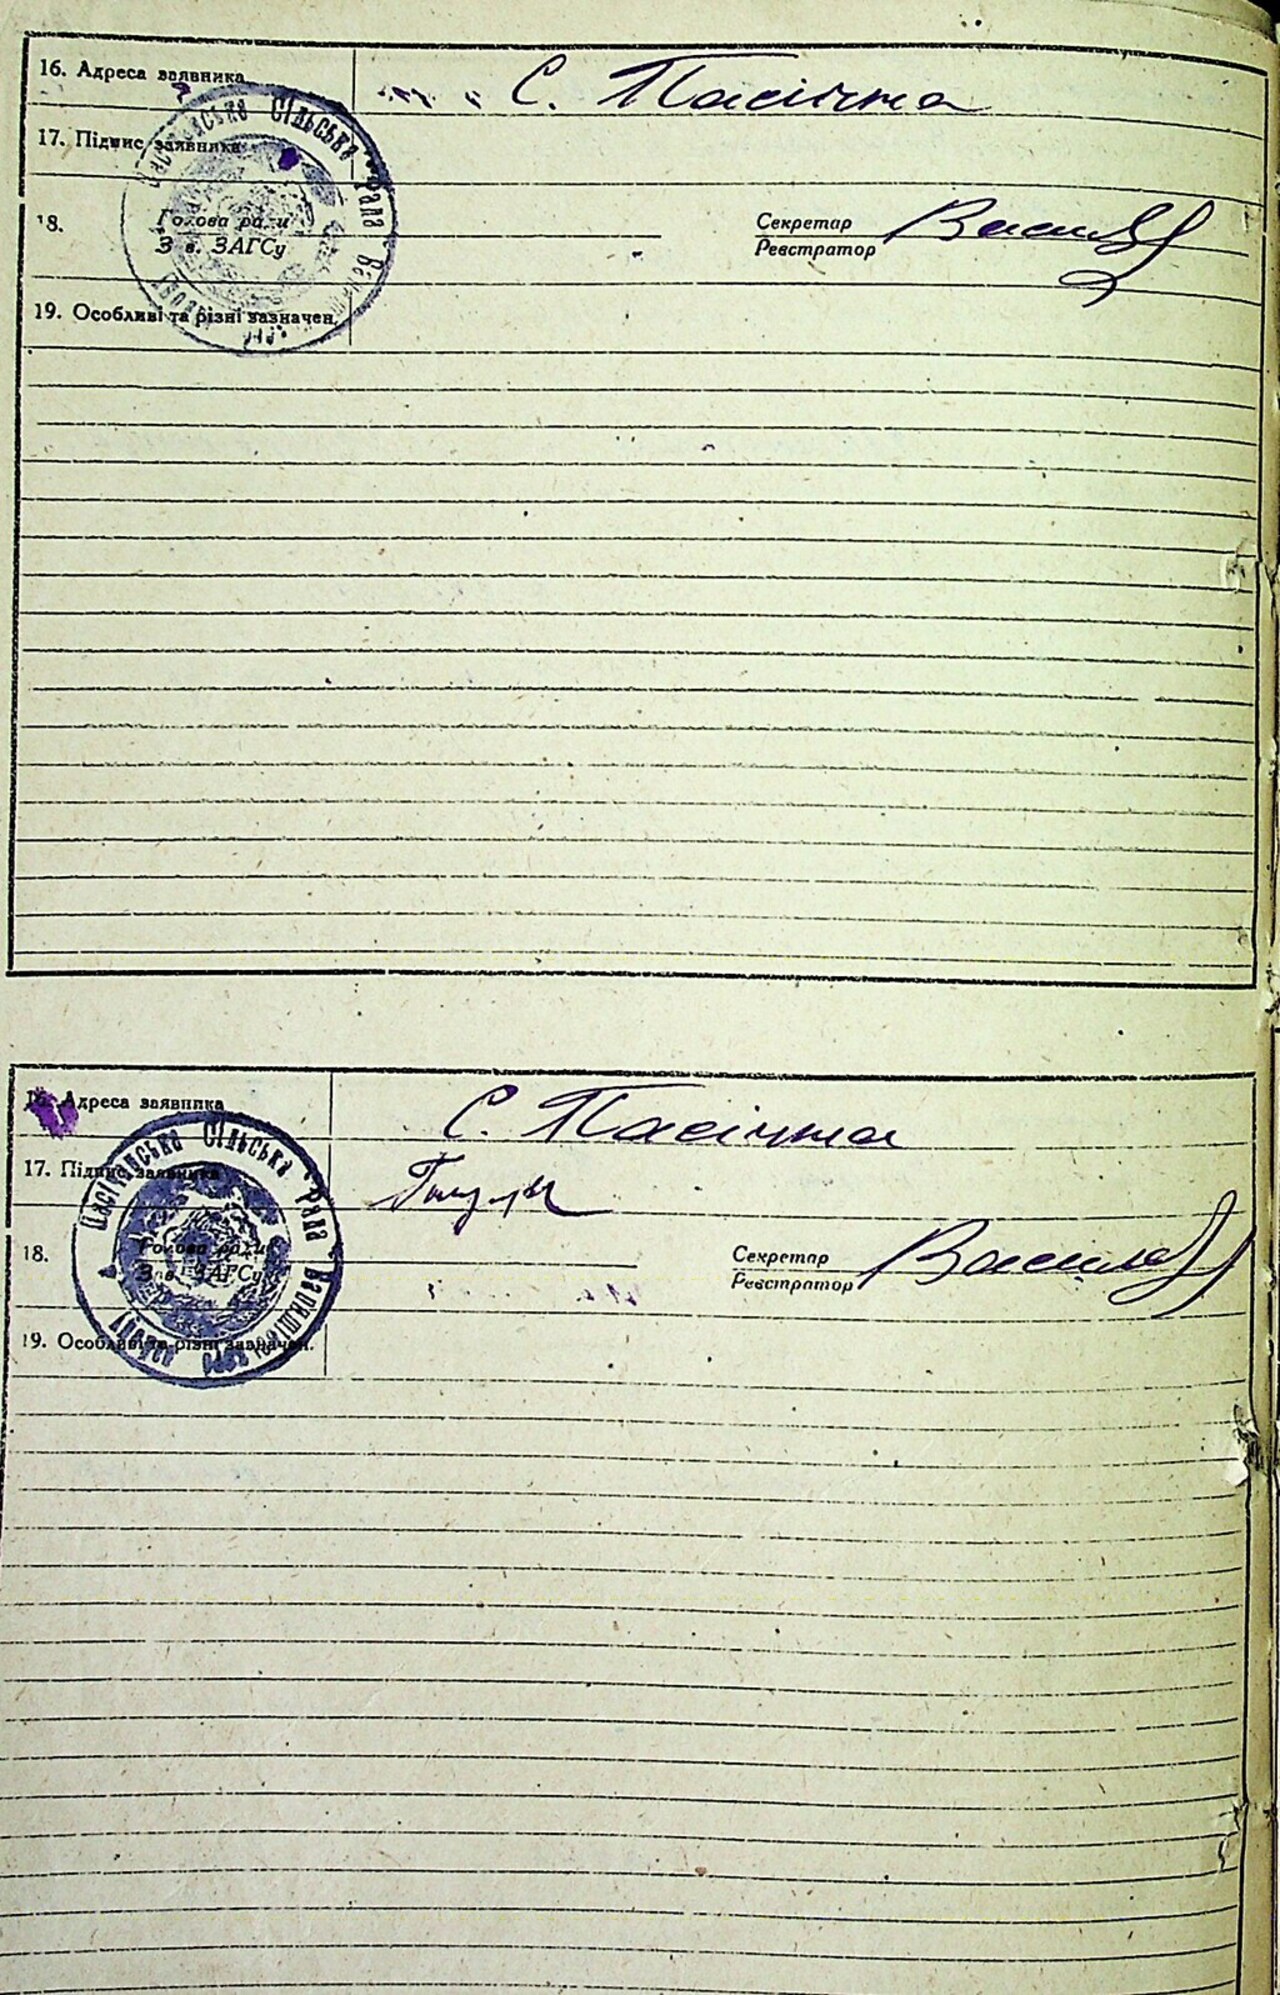 16. Адреса заявника
С. Пасічна
17. Підпис заявника
18.
Голова ради
Зав. ЗАГСу
Секретар
Реєстратор
19. Особливі та різні зазначен.
Сільська Рада
16. Адреса заявника
С. Пасічна
17. Підпис заявника
18.
Голова ради
Зав. ЗАГСу
Секретар
Реєстратор
19. Особливі та різні зазначен.
Пасічнянська Сільська Рада